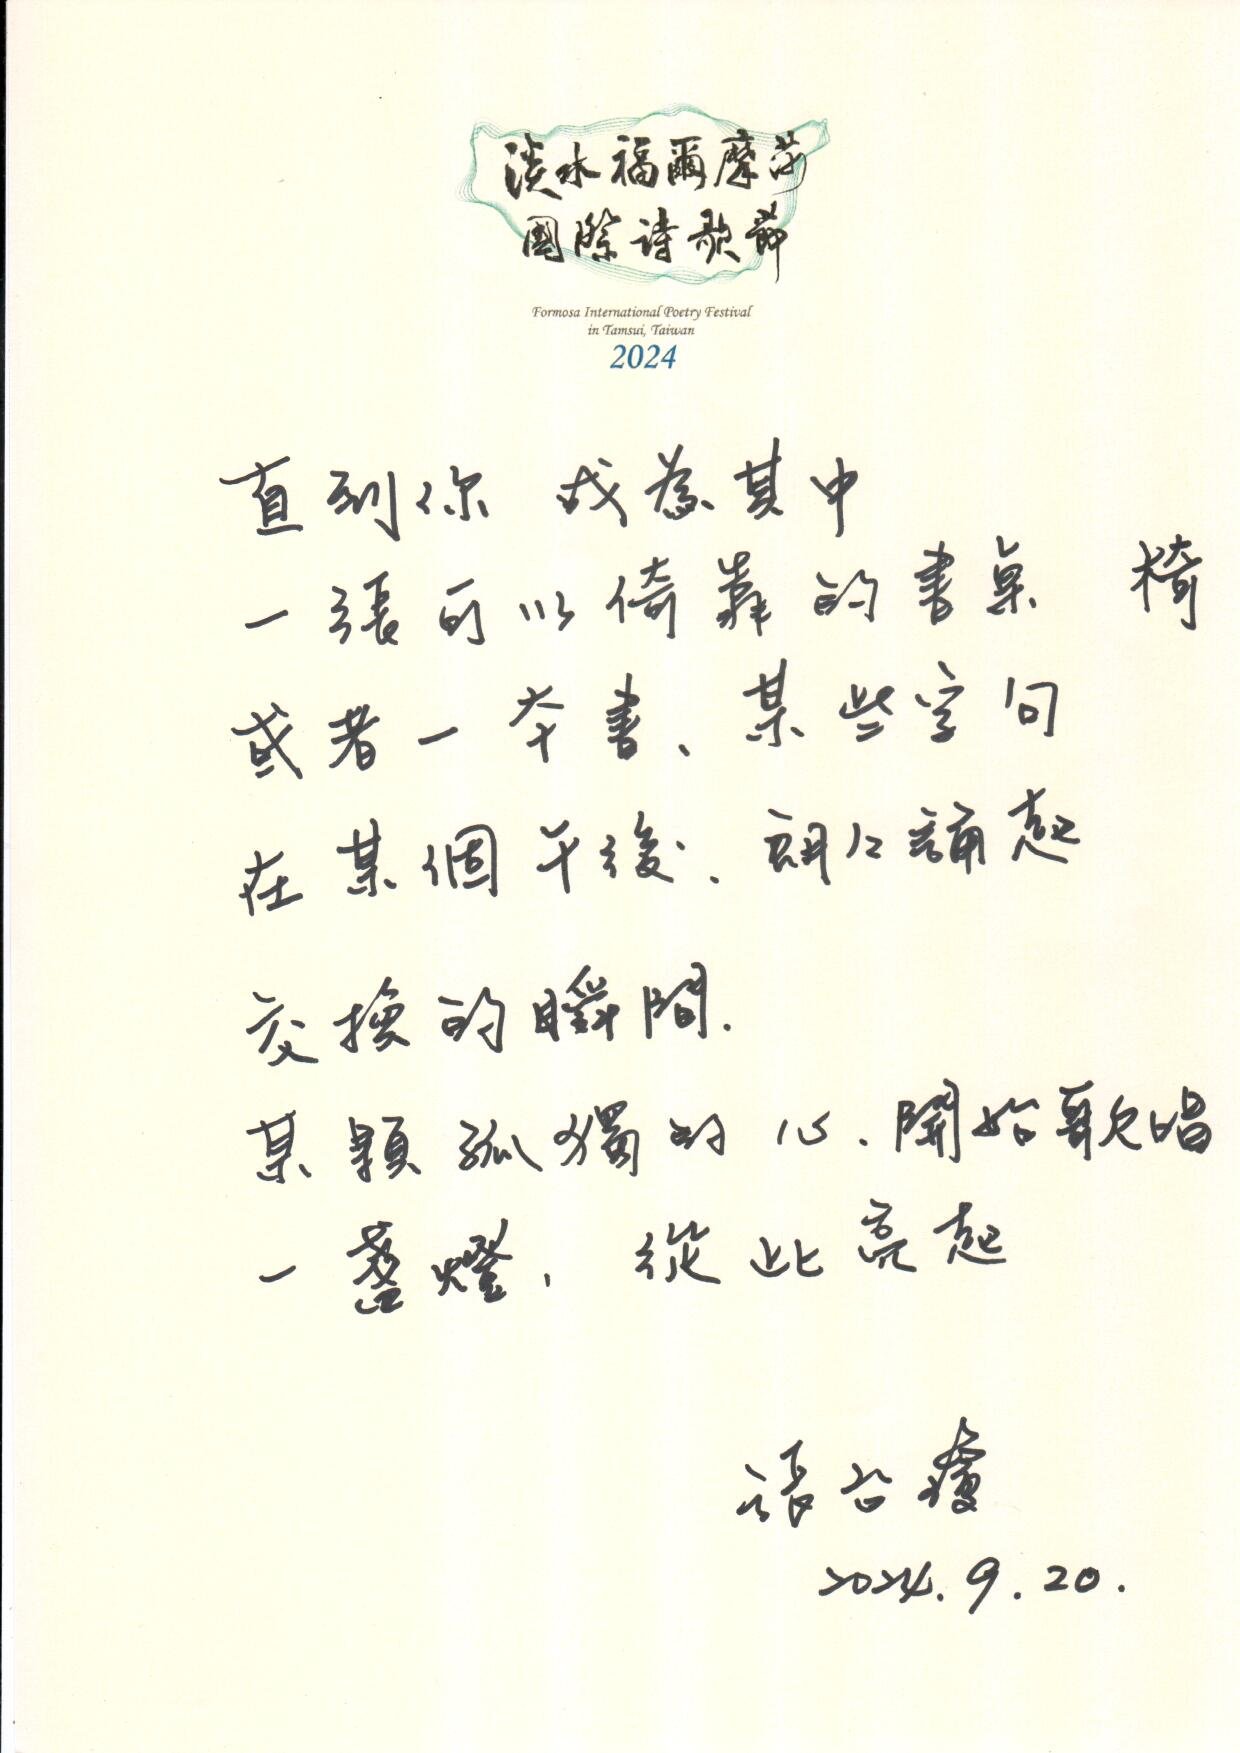 淡水福爾摩莎
國際詩歌節
Formosa International Poetry Festival
in Tamsui, Taiwan
2024
直到你 成為其中
一張可以倚靠的書桌 椅
或者一本書、某些字句
在某個午後、朗朗誦起
交換的瞬間.
某顆孤獨的心、開始歌唱
一盞燈、從此亮起
張台瓊
2024.9.20.